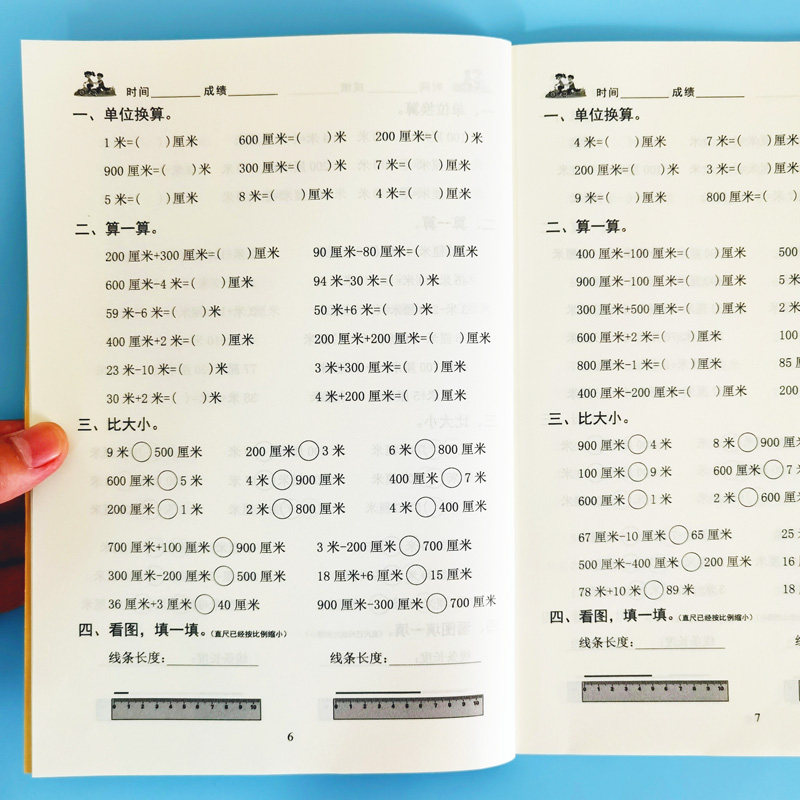 时间______成绩______
一、单位换算。
1米=(  )厘米 600厘米=(  )米 200厘米=(  )米
900厘米=(  )米 300厘米=(  )米 7米=(  )厘米
5米=(  )厘米 8米=(  )厘米 4米=(  )厘米
二、算一算。
200厘米+300厘米=(  )厘米 90厘米-80厘米=(  )厘米
600厘米-4米=(  )厘米 94米-30米=(  )米
59米-6米=(  )米 50米+6米=(  )米
400厘米+2米=(  )厘米 200厘米+200厘米=(  )厘米
23米-10米=(  )米 3米+300厘米=(  )厘米
30米+2米=(  )米 4米+200厘米=(  )厘米
三、比大小。
9米○500厘米 200厘米○3米 6米○800厘米
600厘米○5米 4米○900厘米 400厘米○7米
200厘米○1米 2米○800厘米 4米○400厘米
700厘米+100厘米○900厘米 3米-200厘米○700厘米
300厘米-200厘米○500厘米 18厘米+6厘米○15厘米
36厘米+3厘米○40厘米 900厘米-300厘米○700厘米
四、看图，填一填。(直尺已经按比例缩小)
线条长度:__________ 线条长度:__________
0 1 2 3 4 5 6 7 8 9 10 0 1 2 3 4 5 6 7 8 9 10
6
时间______成绩______
一、单位换算。
4米=(  )厘米 7米=(
200厘米=(  )米 3米=(
9米=(  )厘米 800厘米=(
二、算一算。
400厘米-100厘米=(  )厘米 500
900厘米-100厘米=(  )厘米 5米
300厘米+500厘米=(  )厘米 2米
600厘米+2米=(  )厘米 100
800厘米-1米=(  )厘米 85厘
400厘米-200厘米=(  )厘米 200
三、比大小。
900厘米○4米 8米○900厘米
100厘米○9米 600厘米○7米
600厘米○1米 2米○600厘米
67厘米-10厘米○65厘米 25
500厘米-400厘米○200厘米 16
78米+10米○89米 18
四、看图，填一填。(直尺已经按比例缩小)
线条长度:__________ 线
0 1 2 3 4 5 6 7 8 9 10
7